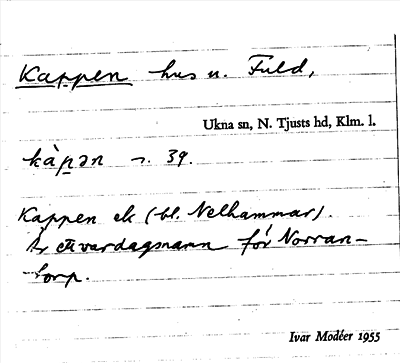 Kappen hus u. Fuld,
Ukna sn, N. Tjusts hd, Klm. l.
kàpən 39.
Kappen ek (bl. Nelhammar).
Är ett vardagsnamn för Norran-
torp.
Ivar Modéer 1955